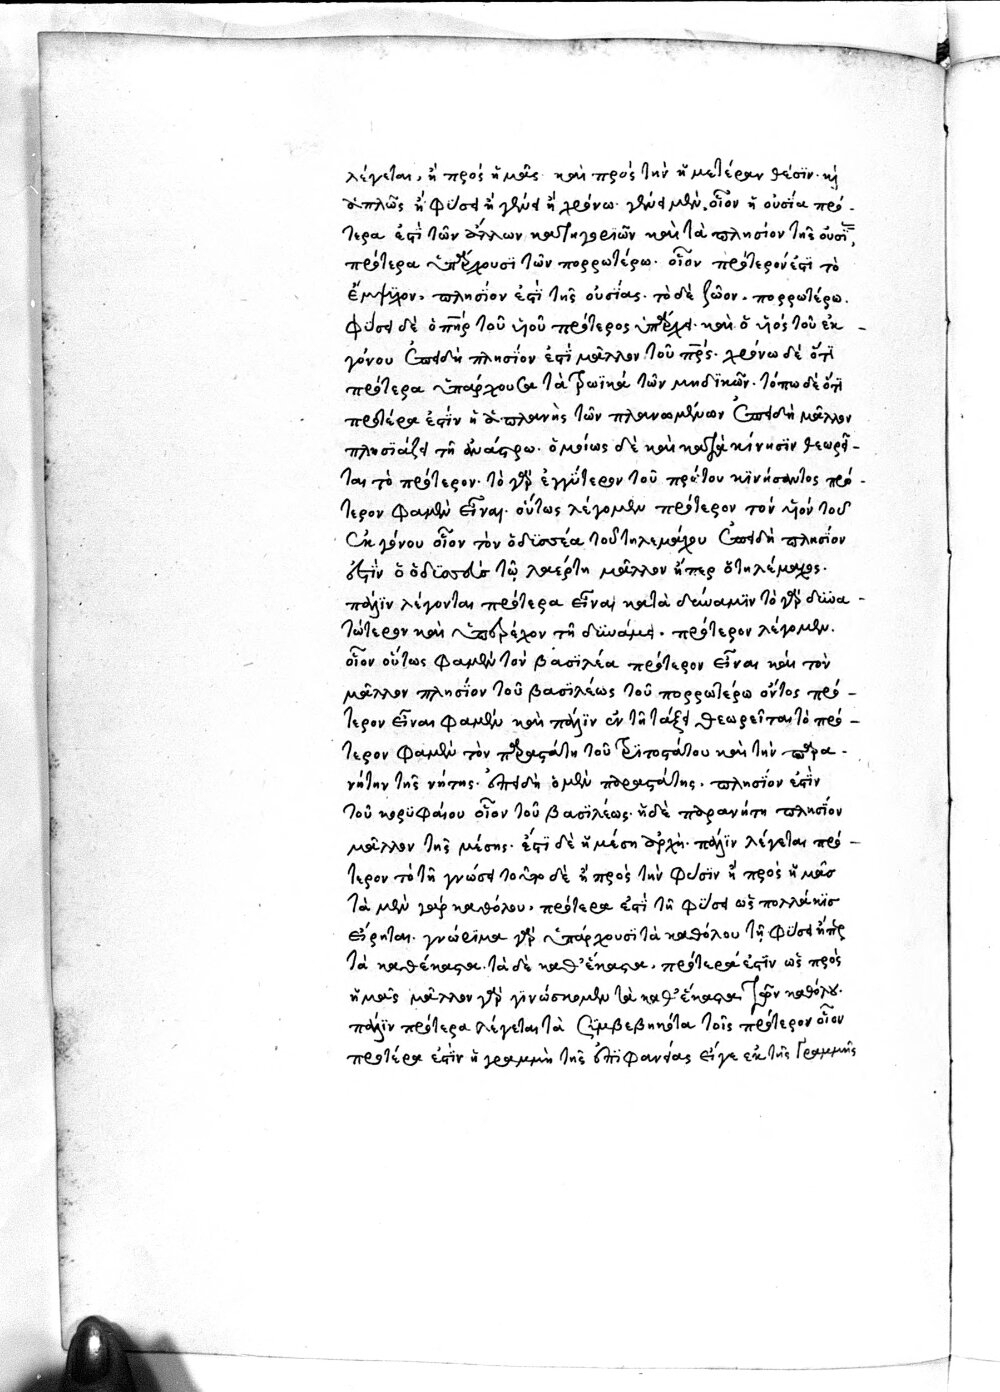 λέγεται, ἢ πρὸς ἡμᾶς καὶ πρὸς τὴν ἡμετέραν θέσϊν· κỳ
ἁπλῶς ἢ φύσει ἢ γένει ἢ χρόνω· γένει μὲν, οἷον ἡ οὐσία πρό-
τερα ἐστὶ τῶν ἄλλων κατηγοριῶν καὶ τὰ πλησίον τῆς οὐσί,
πρότερα ὑπάρχουσϊ τῶν πορρωτέρω· οἷον πρότερόν ἐστϊ τὸ
ἔμψϋχον, πλησίον ἐστὶ τῆς οὐσίας· τὸ δὲ ζῶον, πορρωτέρω.
φύσει δὲ ὁ πηρ τοῦ ϋἱοῦ πρότερος ὑπάρχει· καὶ ὁ ϋἱὸς τοῦ ἐκ-
γόνου ἐπειδὴ πλησίον ἐστὶ μᾶλλον τοῦ πρς· χρόνω δὲ ὅτϊ
πρότερα ὑπάρχουσα τὰ τρωϊκὰ τῶν μηδϊκῶν· τόπω δὲ ὅτϊ
πρότέρα ἐστὶν ἡ ἀπλανὴς τῶν πλανωμένων ἐπειδὴ μᾶλλον
πλησϊάζει τῆ ἀνάστρω· ὁμοίως δὲ καὶ κατὰ κίνησϊν θεωρεῖ-
ται τὸ πρότερον· τὸ γὰρ ἐγγΰτερον τοῦ πρώτου κϊνήσαντος πρό-
τερον φαμὲν εἶναι· οὕτως λέγομεν πρότερον τὸν ϋἱὸν τοῦ
ἐκγόνου οἷον τὸν ὀδϋσσέα τοῦ τηλεμάχου ἐπειδὴ πλησίον
ἐστὶν ὁ ὀδϋσσεὺς τῶ λαέρτη μᾶλλον ἤπερ ὁ τηλέμαχος·
πάλϊν λέγονται πρότερα εἶναι κατὰ δύναμϊν τὸ γὰρ δϋνα-
τώτερον καὶ ὑπερέχον τῆ δϋνάμει, πρότερον λέγομεν.
οἷον οὕτως φαμὲν τὸν βασϊλέα πρότερον εἶναι καὶ τὸν
μᾶλλον πλησίον τοῦ βασϊλέως τοῦ πορρωτέρω ὄντος πρό-
τερον εἶναι φαμὲν καὶ πάλϊν ἐν τῆ τάξει θεωρεῖται τὸ πρό-
τερον φαμὲν τὸν παραστάτη τοῦ τρϊτοστάτου καὶ τὴν παρα-
νήτην τῆς νήτης· ἐπειδὴ ὁ μὲν παραστάτης, πλησίον ἐστὶν
τοῦ κορϋφαίου οἷον τοῦ βασϊλέως· ἡ δὲ παρανήτη πλησίον
μᾶλλον τῆς μέσης· ἐστὶ δὲ ἡ μέση ἀρχή· πάλϊν λέγεται πρό-
τερον τὸ τῆ γνώσει τοῦτο δὲ ἢ πρὸς τὴν φύσϊν ἢ πρὸς ἡμᾶς
τὰ μὲν γὰρ καθόλου, πρότερα ἐστὶ τῆ φύσει ὡς πολλάκϊς
εἴρηται· γνώρϊμα γὰρ ὑπάρχουσϊ τὰ καθόλου τῆ φύσει ἤπερ
τὰ καθέκαστα· τὰ δὲ καθ' ἕκαστα, πρότερά ἐστϊν ὡς πρὸς
ἡμᾶς μᾶλλον γὰρ γϊνώσκομεν τὰ καθ' ἕκαστα τῶν καθόλου·
πάλϊν πρότερα λέγεται τὰ σϋμβεβηκότα τοῖς πρότερον οἷον
πρότέρα ἐστὶν ἡ γραμμὴ τῆς ἐπϊφανείας εἴγε ἐκ τῆς γραμμῆς